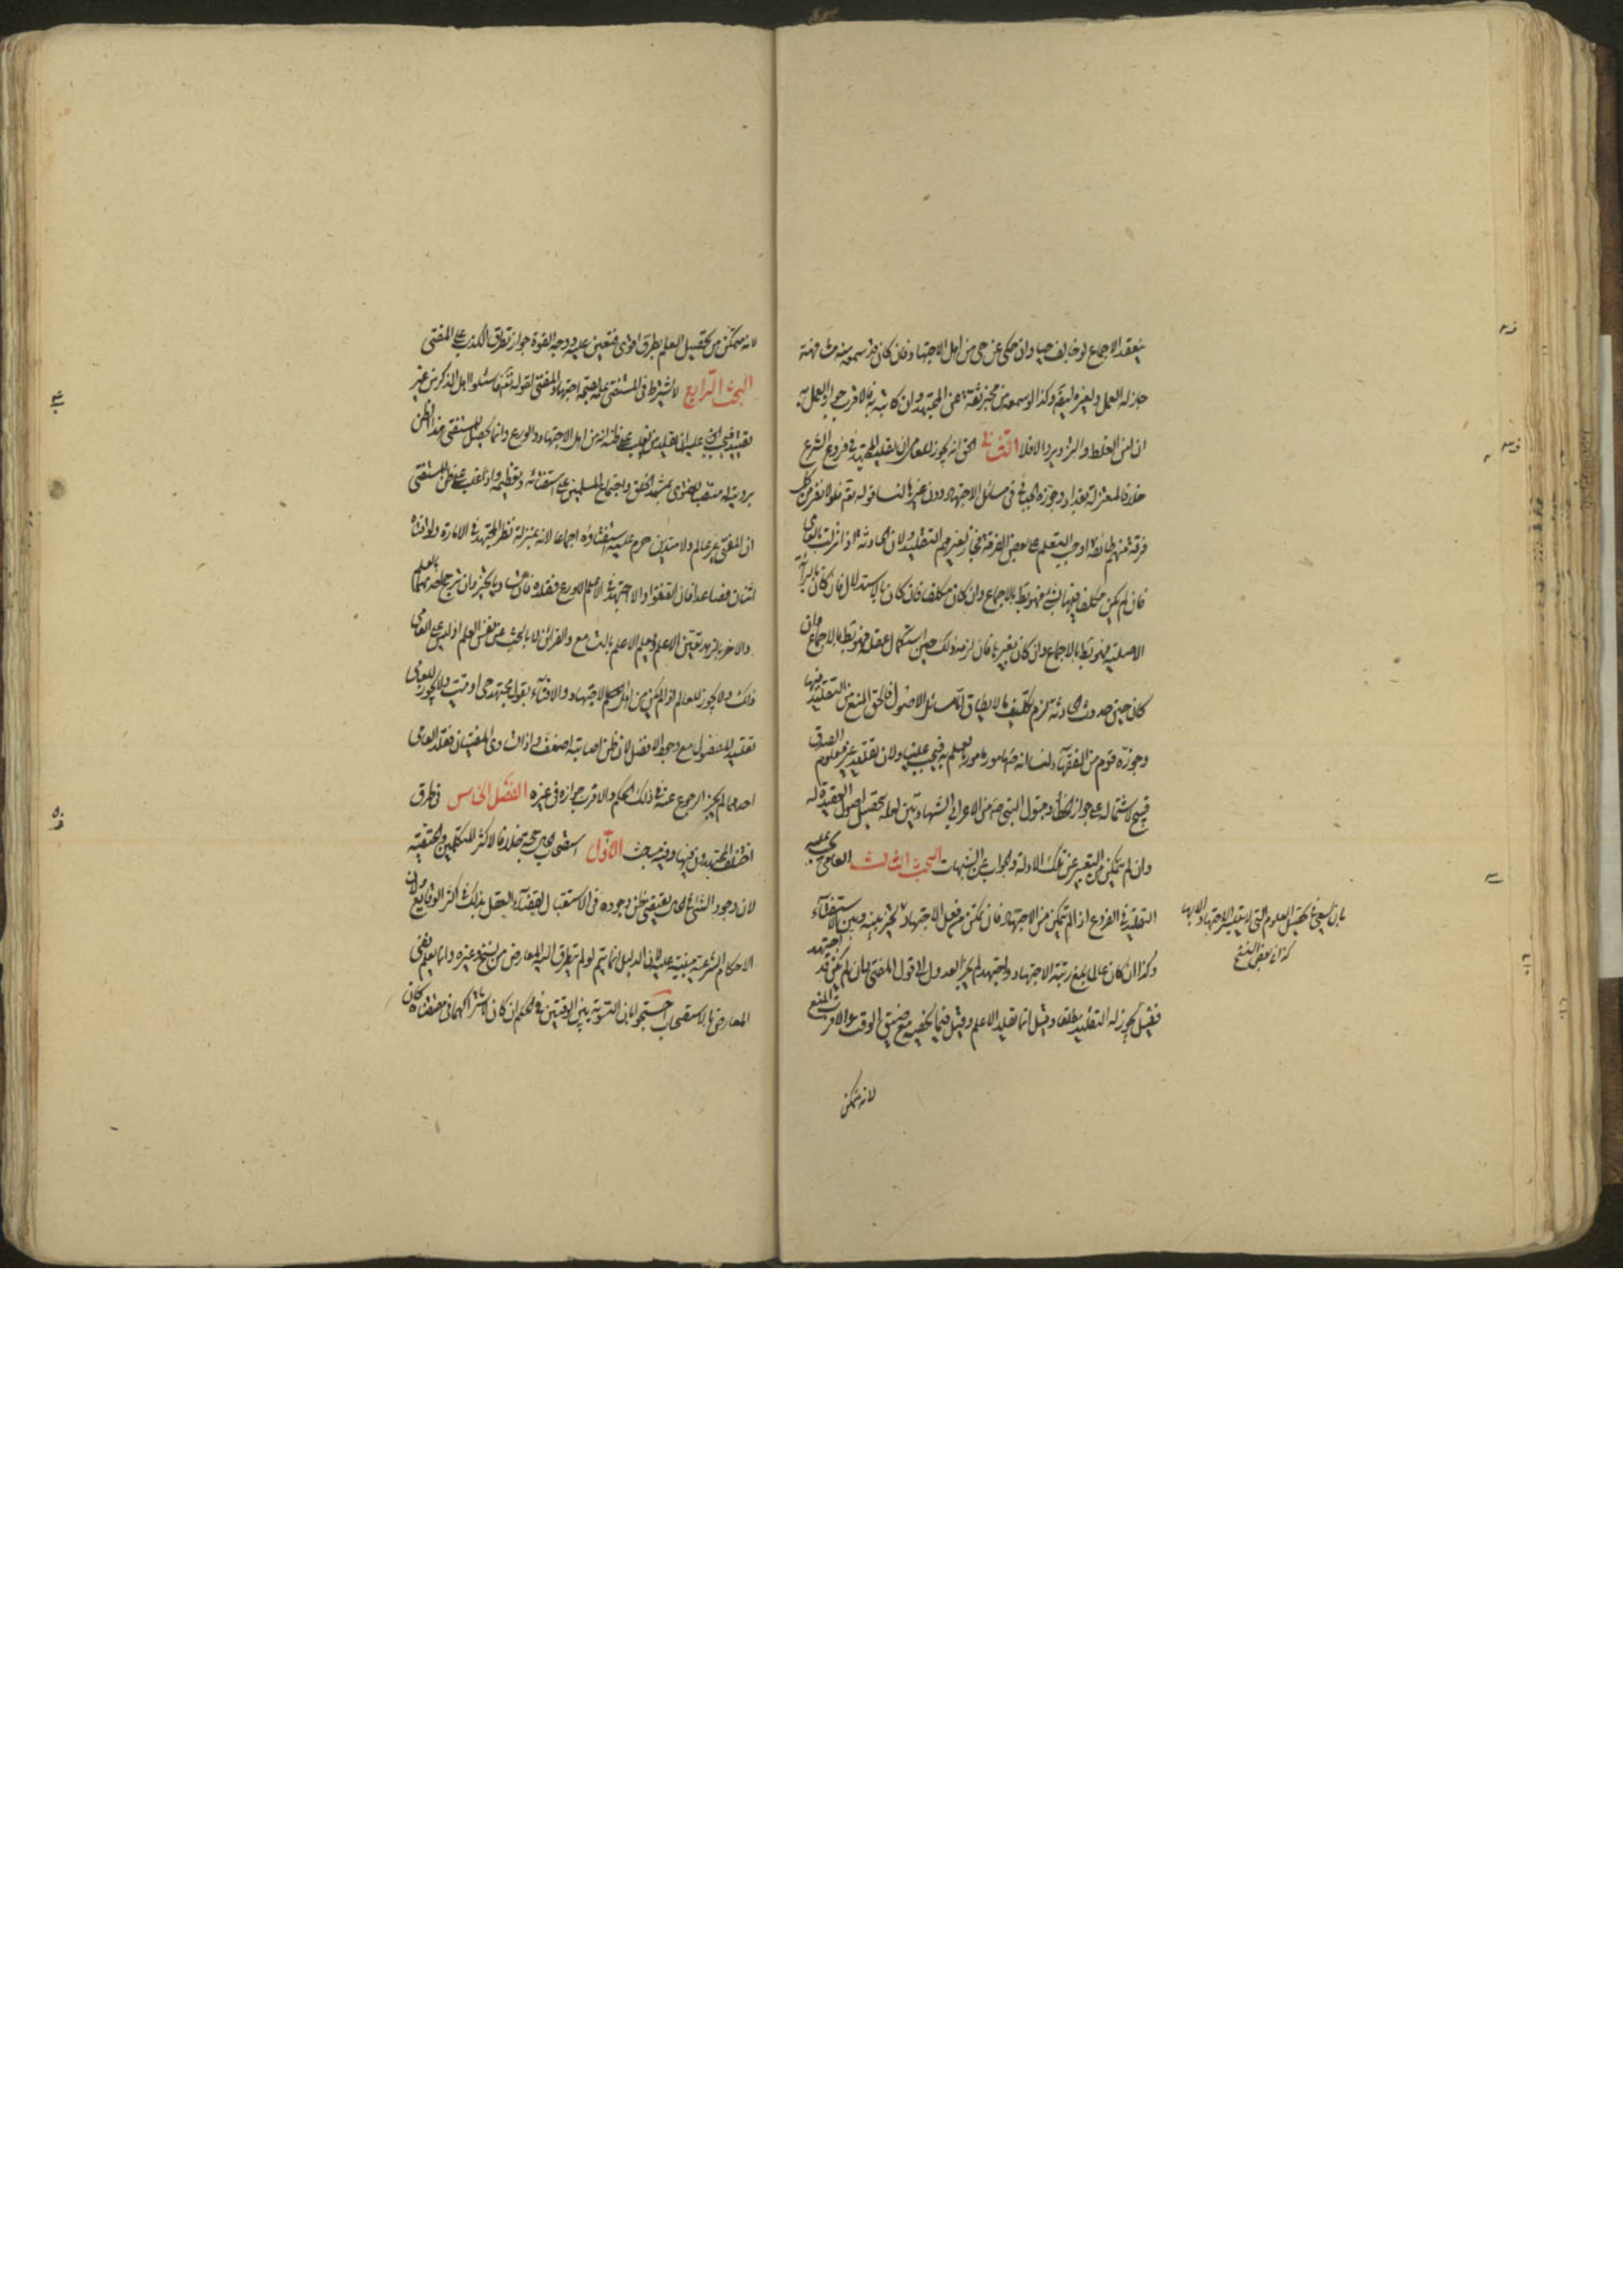 ينعقد الاجماع لو خالف حيا وان حكى عن حي من اهل الاجتهاد فان كان قد سمعه منه مشافهة
جاز له العمل ولغيره ايضا وكذا لو سمعه من مخبر ثقة عن المجتهد وان كان كتابة فالاقرب جواز العمل به
ان امن الغلط والتزوير والا فلا الثانى الحق انه يجوز للعامى ان يقلد المجتهد فى فروع الشرع
خلافا لمعتزلة بغداد وجوزه الجبائى فى مسائل الاجتهاد دون غيرها لنا قوله تعالى فلولا نفر من كل
فرقة منهم طائفة اوجب التعلم على بعض الفرقة فجاز لغيرهم التقليد ولان الحادثة اذا نزلت بالعامى
فان لم يكن مكلفا فيها بشئ فهو بط بالاجماع وان كان مكلفا فان كان بالاستدلال فان كان بالبراءة
الاصلية فهو بط بالاجماع وان كان بغيرها فان لزمه ذلك حين استكمال عقله فهو بط بالاجماع وان
كان حين حدوث الحادثة لزم تكليف ما لا يطاق اما مسائل الاصول فالحق المنع من التقليد فيها
وجوزه قوم من الفقهاء لنا انه ص مامور بالعلم فيجب علينا ولان تقليد غير معلوم الصدق
قبيح لاشتماله على جواز الخطأ وقبول النبى ص من الاعرابى الشهادتين لعلمه بتحصيل اصول العقيدة له
وان لم يتمكن من التعبير عن تلك الادلة والجواب عن الشبهات البحث الثالث العامى يجب عليه
التقليد فى الفروع اذا لم يتمكن من الاجتهاد فان تمكن من فعل الاجتهاد تخير بينه وبين الاستفتاء
وكذا ان كان عالما بلغ رتبة الاجتهاد واجتهد لم يجز العدول الى قول المفتى وان لم يكن قد اجتهد
فقيل يجوز له التقليد مطلقا وقيل انما تقليد الاعلم وقيل فيما يخصه مع ضيق الوقت والاقرب المنع
لانه متمكن
بان يسعى فى تحصيل العلوم التى لا يتيسر الاجتهاد الا بها
كذا فى بعض النسخ
لانه متمكن من تحصيل العلم بطريق اقوى فتعين عليه ووجه القوة جواز تطرق الكذب على المفتى
البحث الرابع لا يشترط فى المستفتى علمه بصحة اجتهاد المفتى لقوله تعالى فاسئلوا اهل الذكر من غير
تقييد بل يجب عليه ان يقلد من يغلب على ظنه انه من اهل الاجتهاد والورع وانما يحصل للمستفتى هذا الظن
برؤيته له منتصبا للفتوى بمشهد الخلق واجتماع المسلمين على استفتائه وتعظيمه واذا غلب على ظن المستفتى
ان المفتى غير عالم ولا متدين حرم عليه استفتاؤه اجماعا لانه بمنزلة نظر المجتهد فى الامارة ولو افتاه
اثنان فصاعدا فان اتفقوا والا اجتهد فى الاعلم الاورع فقلده فان تساويا تخير وان ترجح احدهما بالعلم
والاخر بالزهد تعين الاعلم ويعلم الاعلم بالتسامع والقرائن لا بالبحث عن نفس العلم اذ ليس على العامى
ذلك ولا يجوز للعالم اذا لم يكن من اهل الاجتهاد والافتاء بقول مجتهد حى او ميت ولا يجوز للعامى
تقليد المفضول مع وجود الافضل لان ظن اصابته اضعف واذا تساوى المفتيان فقلد العامى
احدهما لم يجز الرجوع عنه فى ذلك الحكم والاقرب جوازه فى غيره الفصل الخامس فى طرق
اختلف المجتهدون فيها وفيه مباحث الاول استصحاب الحال حجة خلافا لاكثر المتكلمين والحنفية
لان وجود الشئ فى الحال يقتضى ظن وجوده فى الاستقبال لقضاء العقل بذلك فى اكثر الوقايع ولان
الاحكام الشرعية مبنية عليه لان الدليل انما يتم لو لم يتطرق اليه المعارض من نسخ وغيره وانما يعلم نفى
المعارض بالاستصحاب احتجوا بان التسوية بين الوقتين فى الحكم ان كان لاشتراكهما فى مقتضاه كان